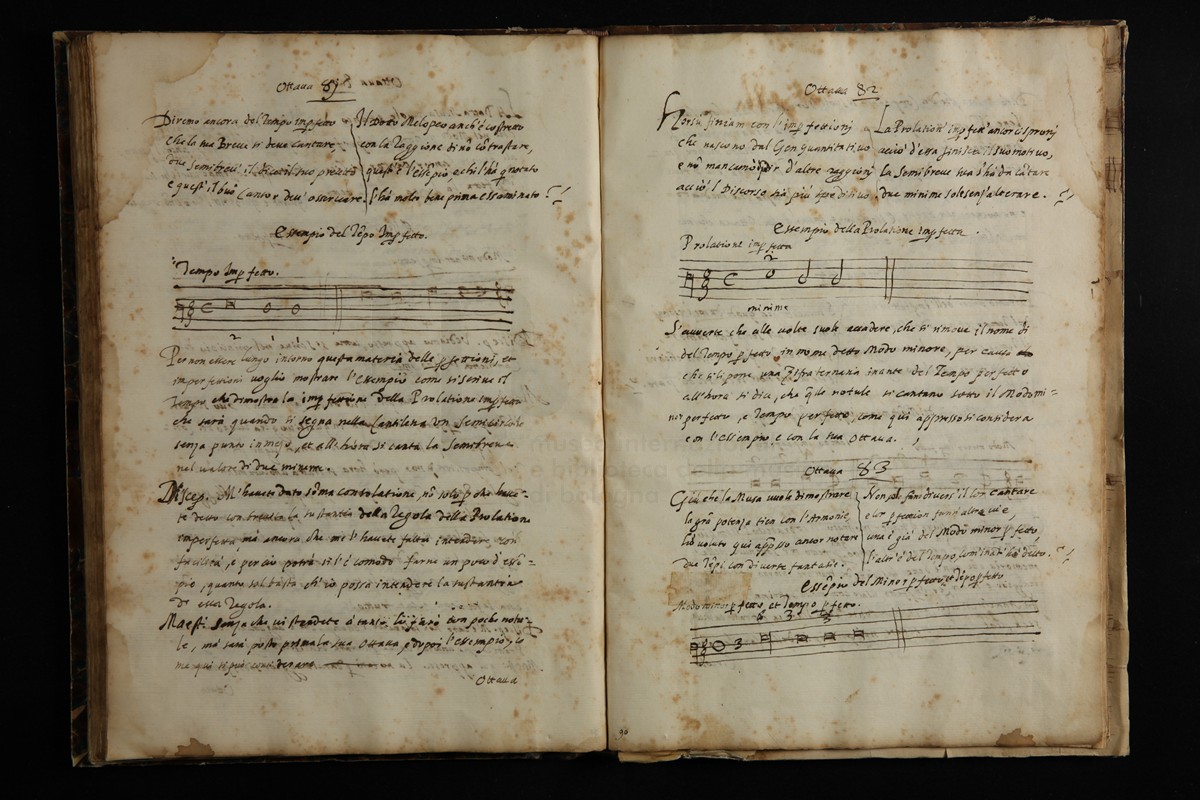 Ottava 81
Diremo ancora del Tempo imperfetto
che la sua Breve si deve cantare
due semibrevi, il
e quest' il buon Cantor deve osservare
Il Dotto Melopeo anch'è costretto
con la Raggione di nõ cõtrastare,
quest' è l'essẽpio e chi l'hà notato
l'hà molto bene prima essaminato.
Essempio del Tẽpo Imperfetto.
Tempo Imperfetto.
2
Per non essere lungo intorno questa materia delle perfettioni, et
imperfettioni voglio mostrare l'essempio come si scrive il
Tempo che dimostra la imperfettione della Prolatione imperfetta
che sarà quando si segna nella Cantilena un Semicircolo
senza punto in mezo, et all'hora si canta la Semibreve
nel valore di due minime.
Discep. M'havete dato sõma consolatione, nõ solo perche have-
te detto con brevità la sustantia della Regola della Prolatione
imperfetta, mà ancora che me l'havete fatta intendere con
facilità, e perciò potrà si l'è comodo farne un poco d'essẽ-
pio, quanto sol basta ch'io possa intẽdere la sustantia
di essa Regola.
Maest. Senza che vi stendete à tanto, lo farò con poche notu-
le, mà sarà posto prima la sua Ottava e dopoi l'essempio, co-
me quì si può considerare.
Ottava
Ottava 82
Horsù finiam con l'imperfettioni
che nascono dal Gen quantitativo
e nõ mancamo dir d'altre raggioni
acciò l'Discorso sia più speditivo.
La Prolation' imperfett' ancor ci sproni
acciò d'essa finisca il suo motivo,
La Semibreve sua s'hà da cãtare
due minime sole senz' alterare.
Essempio della Prolatione imperfetta.
Prolatione imperfetta
2
minime
S'avverte che alle volte suole accadere, che si rimove il nome di
del Tempo perfetto in nome detto Modo minore, per causa
che si li pone una Cifra ternaria inante del Tempo perfetto
all'hora si dice, che quelle notule si cantano sotto il Modo mi=
nor perfetto, e Tempo perfetto, come quì appresso si considera
con l'essempio e con la sua Ottava.
Ottava 83
Già che la Musa vuole dimostrare
la grã potenza tien con l'Armonie,
hà voluto quì appresso ancor notare
due Tẽpi con diverse fantasie.
Non sol fan diversi il lor cantare
e lor perfettion fann' altre vie,
una è già del Modo minor perfetto,
l'altr' è del Tempo, com' inãti hò detto.
Essẽpio del Minor perfetto, et tẽpo perfetto
Modo minor perfetto, et Tempo perfetto.
3 3 3
90